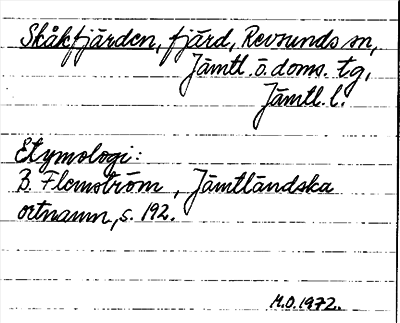 Skåkfjärden, fjärd, Revsunds sn,
Jämtl. ö. doms. tg,
Jämtl. l.
Etymologi:
B. Flemström, Jämtländska
ortnamn, s. 192.
M.O. 1972.